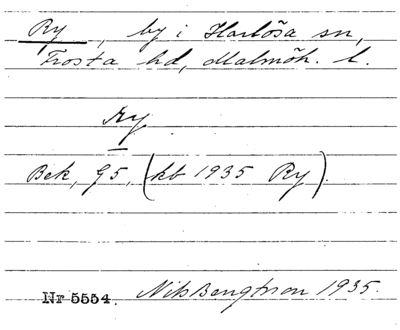 Ry, by i Harlösa sn,
Frosta hd, Malmöh. l.
Ry
Bek, 95, (kb 1935 Ry).
Nr 5554. Nils Bengtsson 1935.